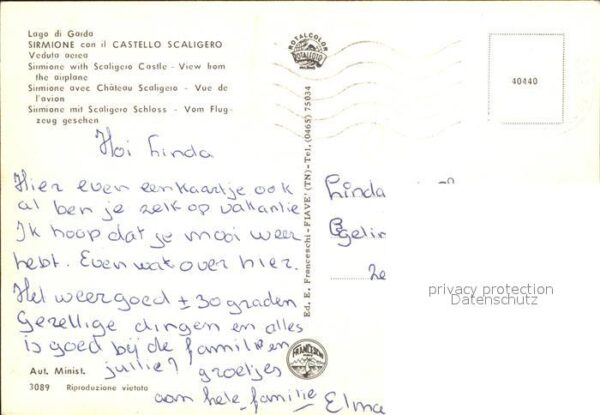 Lago di Garda
SIRMIONE con il CASTELLO SCALIGERO
Veduta aerea
Sirmione with Scaligero Castle - View from
the airplane
Sirmione avec Château Scaligero - Vue de
l'avion
Sirmione mit Scaligero Schloss - Vom Flug-
zeug gesehen
Hoi Linda
Hier even een kaartje ook
al ben je zelf op vakantie
Ik hoop dat je mooi weer
hebt. Even wat over hier.
Het weer goed ± 30 graden
Gezellige dingen en alles
is goed bij de familie en
jullie? groetjes
aan hele familie Elma
Aut. Minist.
3089 Riproduzione vietata
ROTALCOLOR
ROTALFOTO
MILANO
Ed. E. Franceschi - FIAVE' (TN) - Tel. (0465) 75034
FRANCESCHI
40440
Linda
Egelin
Ze
privacy protection
Datenschutz